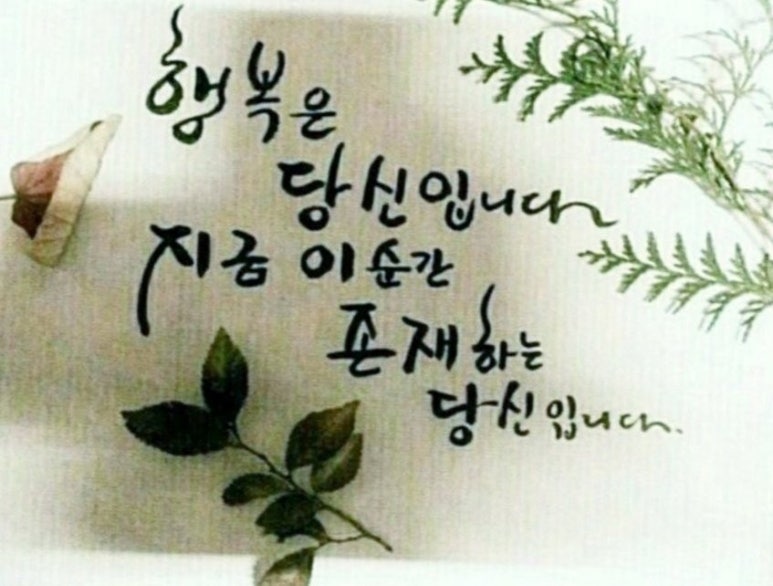 행복은
당신입니다
지금 이 순간
존재하는
당신입니다.